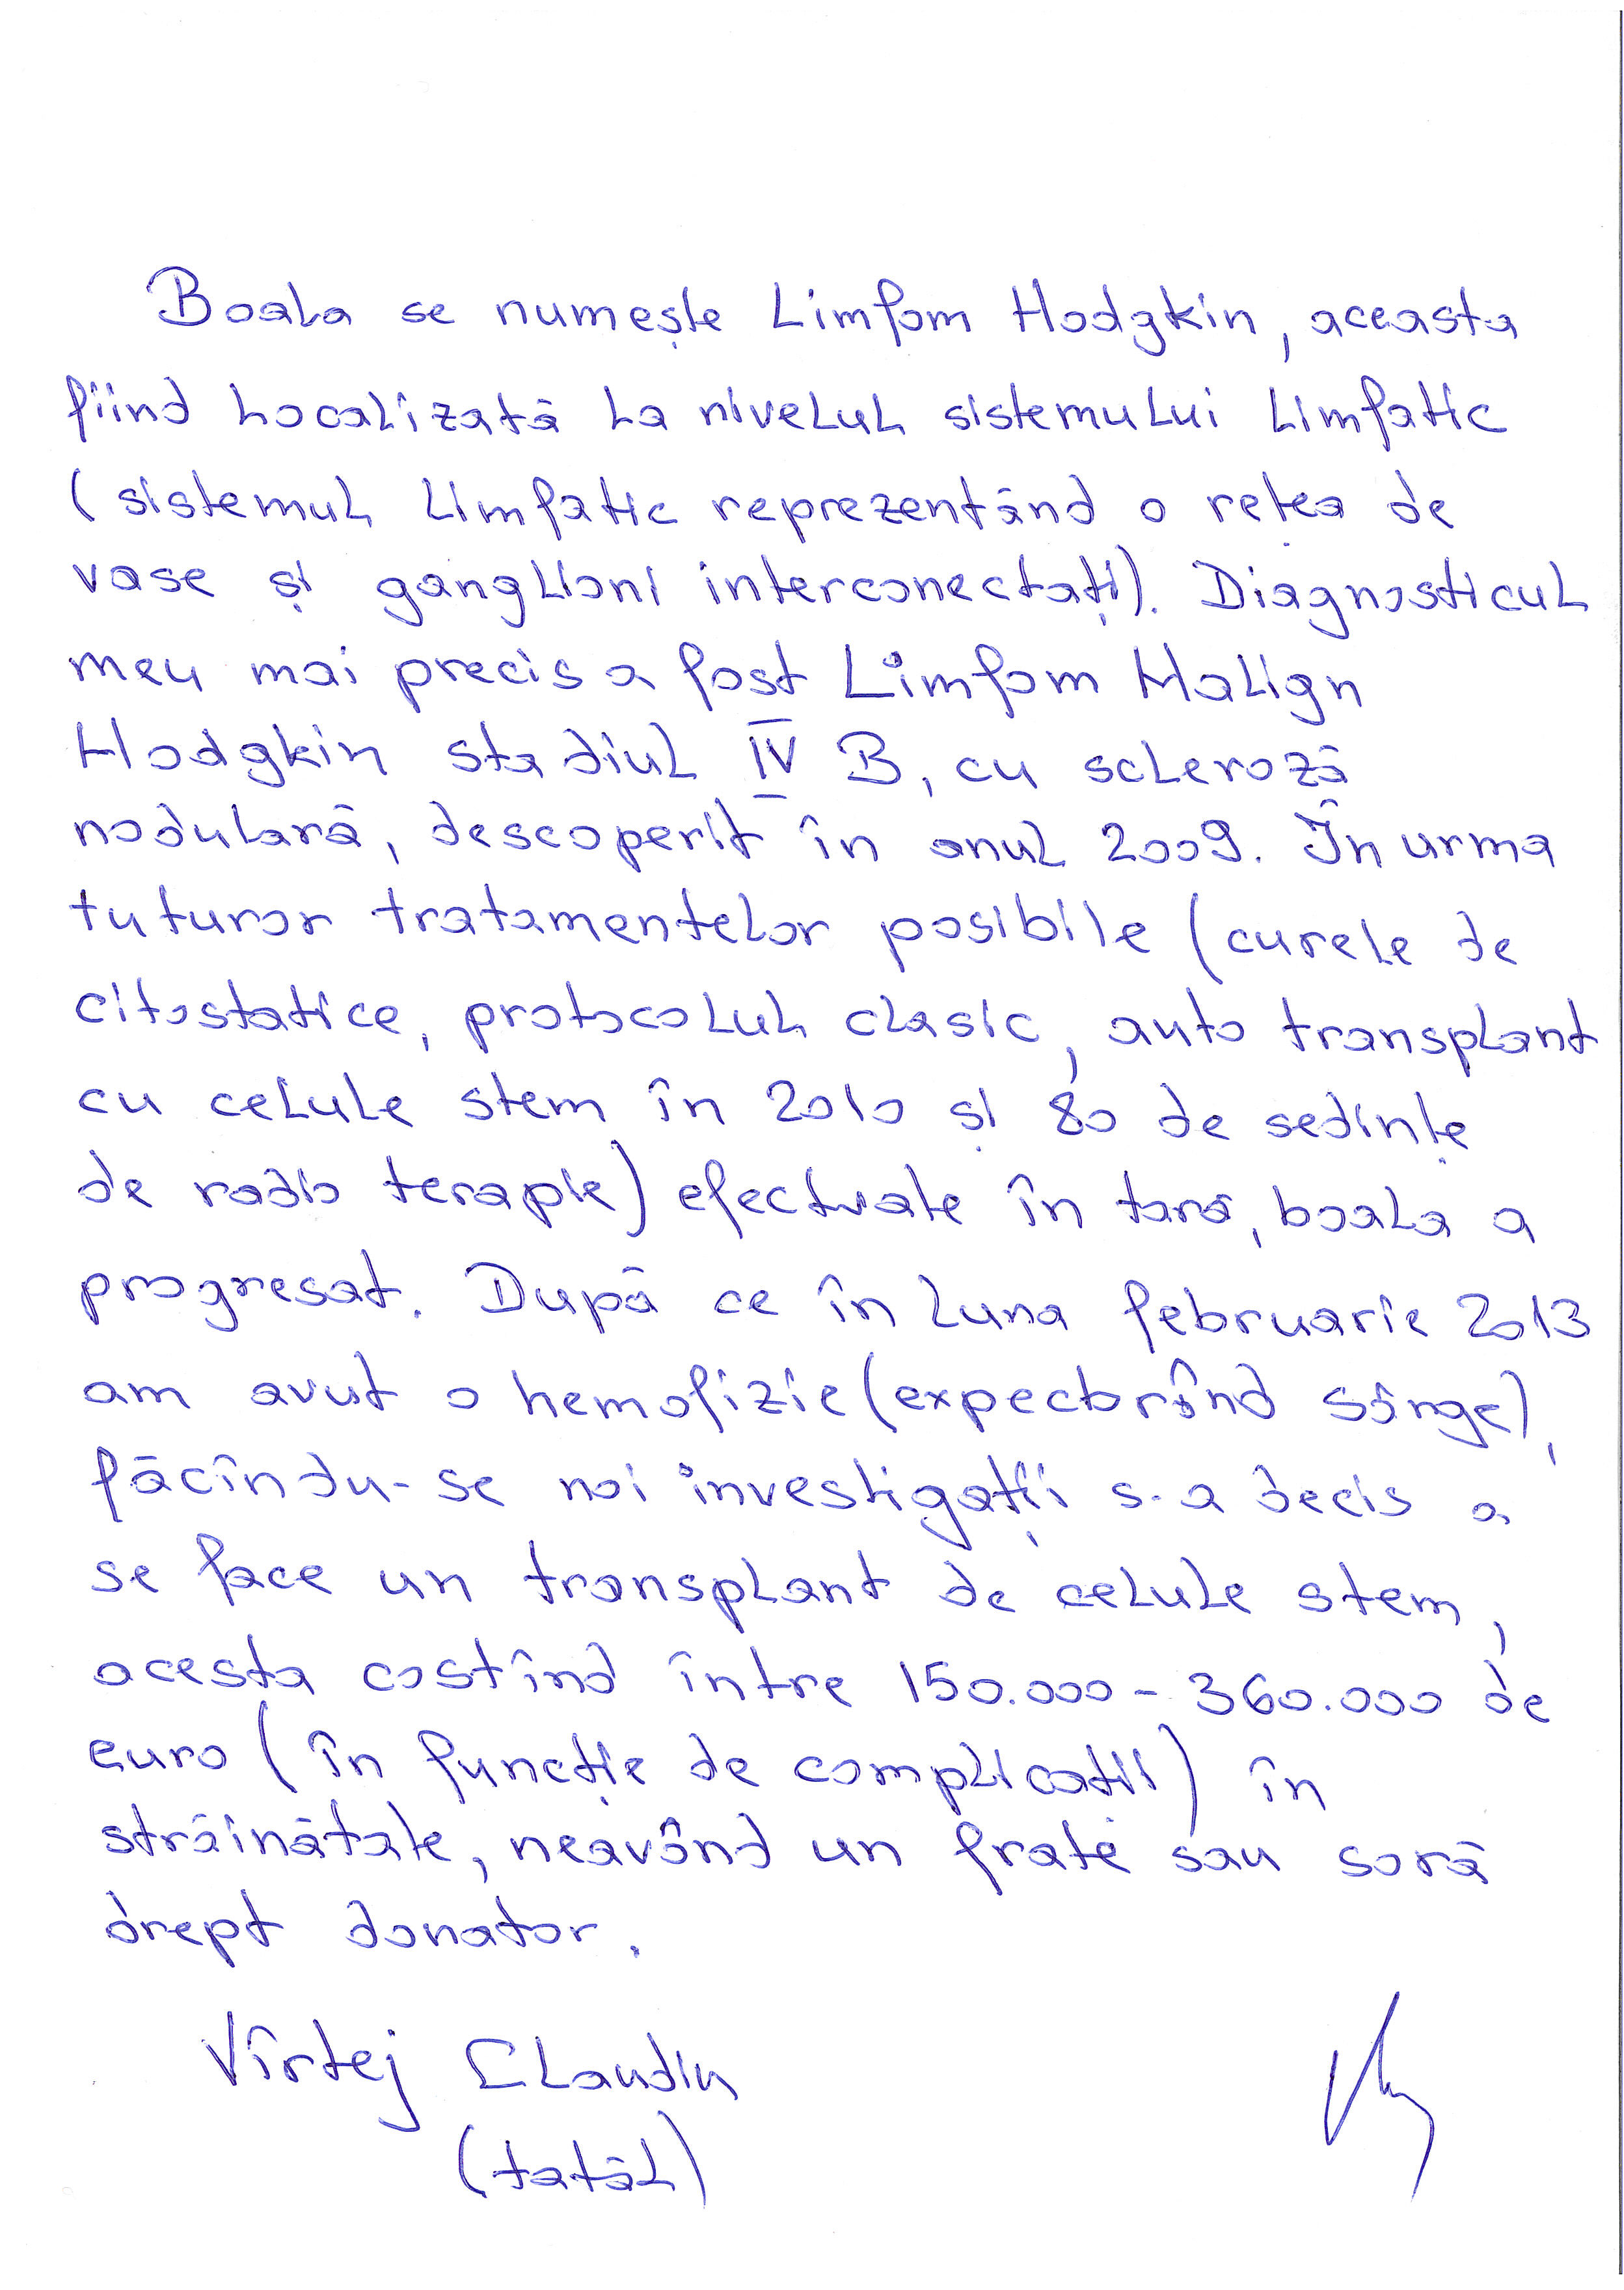 Boala se numește Limfom Hodgkin, aceasta
fiind localizată la nivelul sistemului limfatic
(sistemul limfatic reprezentând o rețea de
vase și ganglioni interconectați). Diagnosticul
meu mai precis a fost Limfom Malign
Hodgkin stadiul IV B, cu scleroză
nodulară, descoperit în anul 2009. În urma
tuturor tratamentelor posibile (curele de
citostatice, protocolul clasic, auto transplant
cu celule stem în 2010 și 80 de sedințe
de radio terapie) efectuate în tară, boala a
progresat. După ce în luna februarie 2013
am avut o hemofizie (expectorînd sânge),
făcîndu-se noi investigații s-a decis a
se face un transplant de celule stem,
acesta costînd între 150.000 - 360.000 de
euro (în funcție de complicatii) în
străinătate, neavând un frate sau soră
drept donator.
Vîrtej Claudiu
(tatăl)